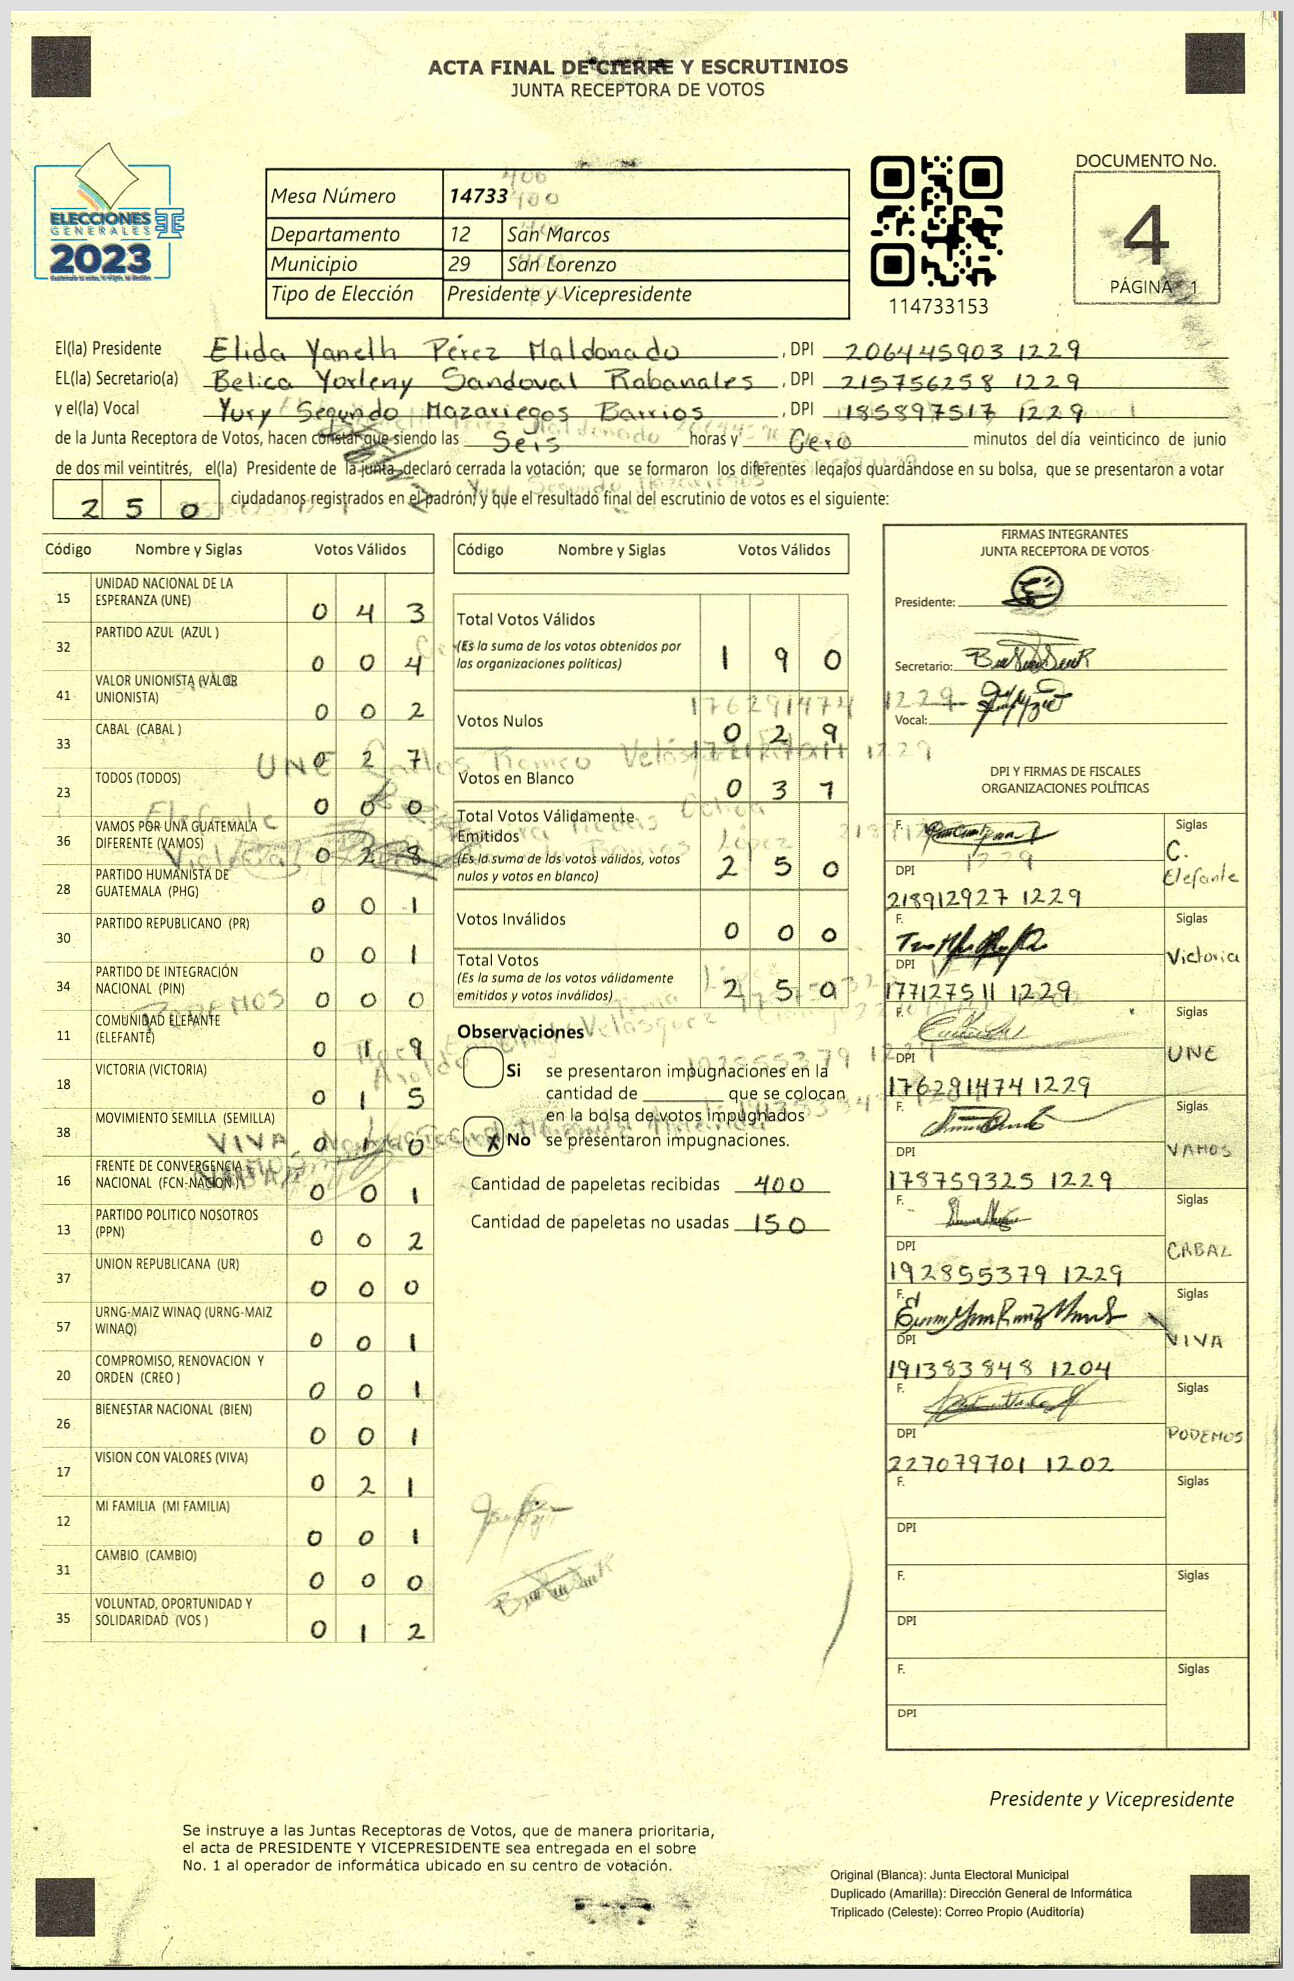 ACTA FINAL DE CIERRE Y ESCRUTINIOS
JUNTA RECEPTORA DE VOTOS
ELECCIONES
GENERALES
2023
Mesa Número 14733
Departamento 12 San Marcos
Municipio 29 San Lorenzo
Tipo de Elección Presidente y Vicepresidente
114733153
DOCUMENTO No.
4
PÁGINA 1
El(la) Presidente Elida Yaneth Pérez Maldonado , DPI 206445903 1229
EL(la) Secretario(a) Belica Yorleny Sandoval Rabanales , DPI 215756258 1229
y el(la) Vocal Yury Segundo Mazariegos Barrios , DPI 185897517 1229
de la Junta Receptora de Votos, hacen constar que siendo las Seis horas y Cero minutos del día veinticinco de junio
de dos mil veintitrés, el(la) Presidente de la junta declaró cerrada la votación; que se formaron los diferentes legajos guardándose en su bolsa, que se presentaron a votar
250 ciudadanos registrados en el padrón, y que el resultado final del escrutinio de votos es el siguiente:
Código Nombre y Siglas Votos Válidos
15 UNIDAD NACIONAL DE LA ESPERANZA (UNE) 0 4 3
32 PARTIDO AZUL (AZUL ) 0 0 4
41 VALOR UNIONISTA (VALOR UNIONISTA) 0 0 2
33 CABAL (CABAL ) 0 2 7
23 TODOS (TODOS) 0 0 0
36 VAMOS POR UNA GUATEMALA DIFERENTE (VAMOS) 0 2 8
28 PARTIDO HUMANISTA DE GUATEMALA (PHG) 0 0 1
30 PARTIDO REPUBLICANO (PR) 0 0 1
34 PARTIDO DE INTEGRACIÓN NACIONAL (PIN) 0 0 0
11 COMUNIDAD ELEFANTE (ELEFANTE) 0 1 9
18 VICTORIA (VICTORIA) 0 1 5
38 MOVIMIENTO SEMILLA (SEMILLA) 0 1 0
16 FRENTE DE CONVERGENCIA NACIONAL (FCN-NACION) 0 0 1
13 PARTIDO POLITICO NOSOTROS (PPN) 0 0 2
37 UNION REPUBLICANA (UR) 0 0 0
57 URNG-MAIZ WINAQ (URNG-MAIZ WINAQ) 0 0 1
20 COMPROMISO, RENOVACION Y ORDEN (CREO ) 0 0 1
26 BIENESTAR NACIONAL (BIEN) 0 0 1
17 VISION CON VALORES (VIVA) 0 2 1
12 MI FAMILIA (MI FAMILIA) 0 0 1
31 CAMBIO (CAMBIO) 0 0 0
35 VOLUNTAD, OPORTUNIDAD Y SOLIDARIDAD (VOS ) 0 1 2
Código Nombre y Siglas Votos Válidos
Total Votos Válidos
(Es la suma de los votos obtenidos por las organizaciones politicas) 1 9 0
Votos Nulos 0 2 9
Votos en Blanco 0 3 1
Total Votos Válidamente Emitidos
(Es la suma de los votos válidos, votos nulos y votos en blanco) 2 5 0
Votos Inválidos 0 0 0
Total Votos
(Es la suma de los votos válidamente emitidos y votos inválidos) 2 5 0
Observaciones
Si se presentaron impugnaciones en la
cantidad de ________ que se colocan
en la bolsa de votos impugnados
X No se presentaron impugnaciones.
Cantidad de papeletas recibidas 400
Cantidad de papeletas no usadas 150
FIRMAS INTEGRANTES
JUNTA RECEPTORA DE VOTOS
Presidente:
Secretario:
Vocal:
DPI Y FIRMAS DE FISCALES
ORGANIZACIONES POLÍTICAS
F. Siglas C. Elefante
DPI 218912927 1229
F. Siglas Victoria
DPI 177127511 1229
F. Siglas UNE
DPI 176291474 1229
F. Siglas VAMOS
DPI 178759325 1229
F. Siglas CABAL
DPI 192855379 1229
F. Siglas VIVA
DPI 191383848 1204
F. Siglas PODEMOS
DPI 227079701 1202
F. Siglas
DPI
F. Siglas
DPI
F. Siglas
DPI
Presidente y Vicepresidente
Se instruye a las Juntas Receptoras de Votos, que de manera prioritaria,
el acta de PRESIDENTE Y VICEPRESIDENTE sea entregada en el sobre
No. 1 al operador de informática ubicado en su centro de votación.
Original (Blanca): Junta Electoral Municipal
Duplicado (Amarilla): Dirección General de Informática
Triplicado (Celeste): Correo Propio (Auditoría)